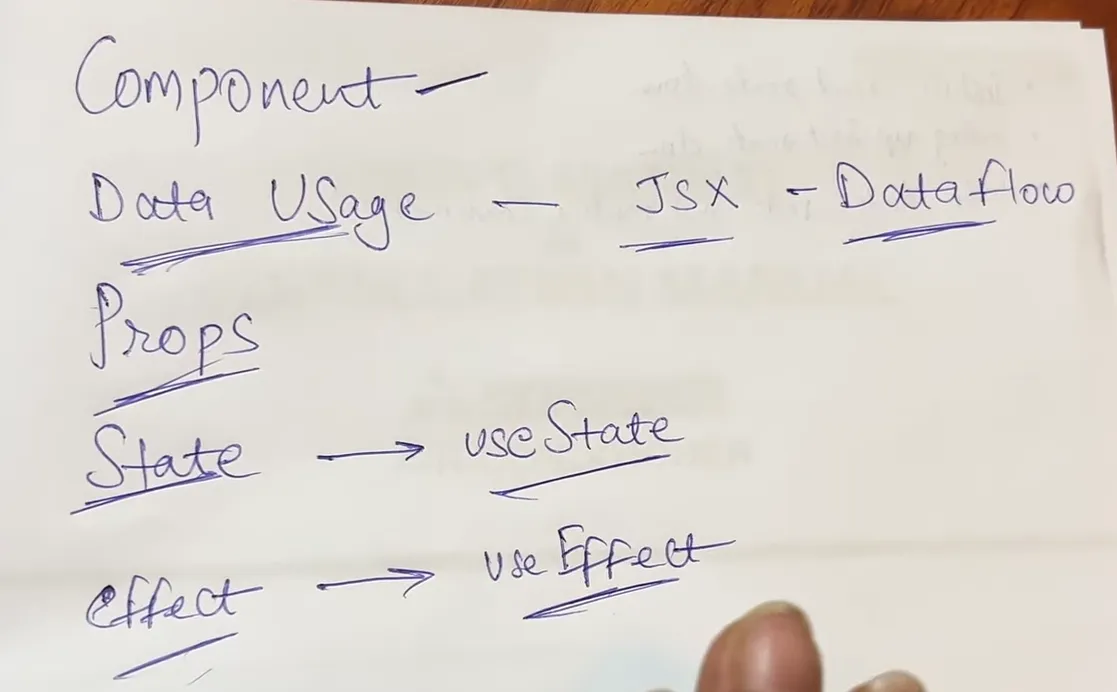 Component -
Data Usage - JSX - Dataflow
Props
State → useState
effect → useEffect